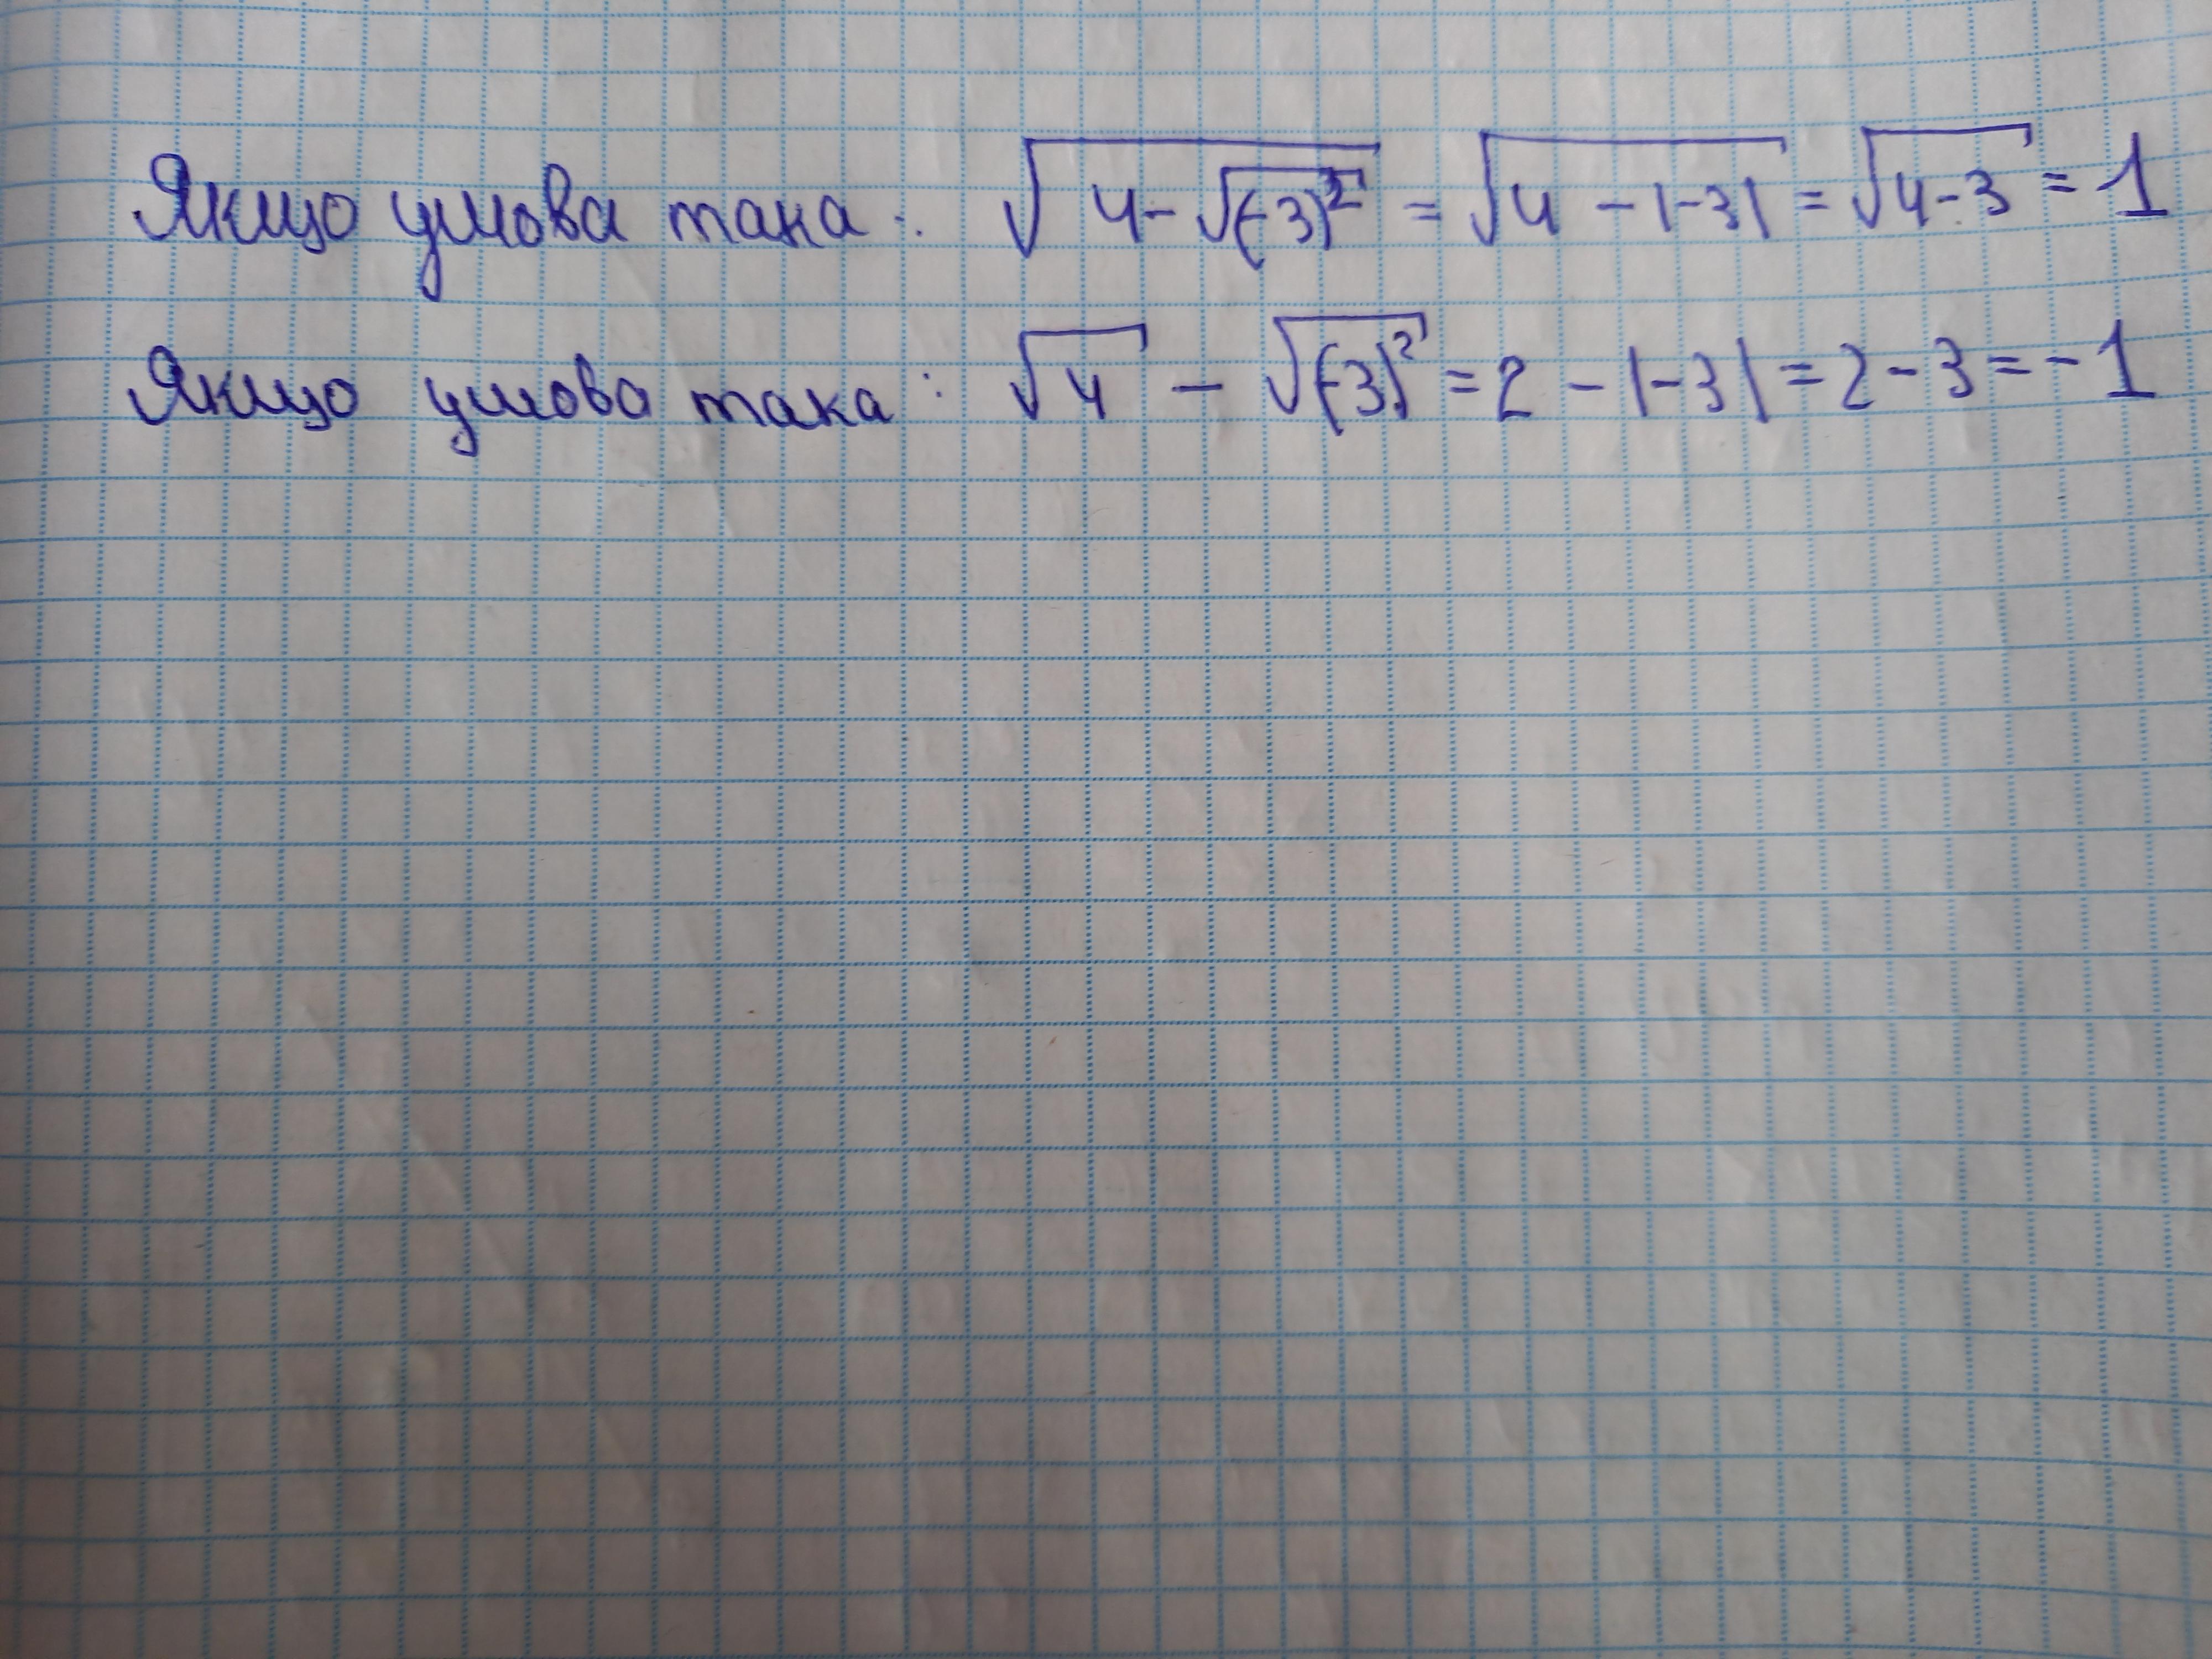 Якщо умова така: √(4-√(-3)²) = √(4-|-3|) = √(4-3) = 1
Якщо умова така: √4 - √(-3)² = 2 - |-3| = 2 - 3 = -1